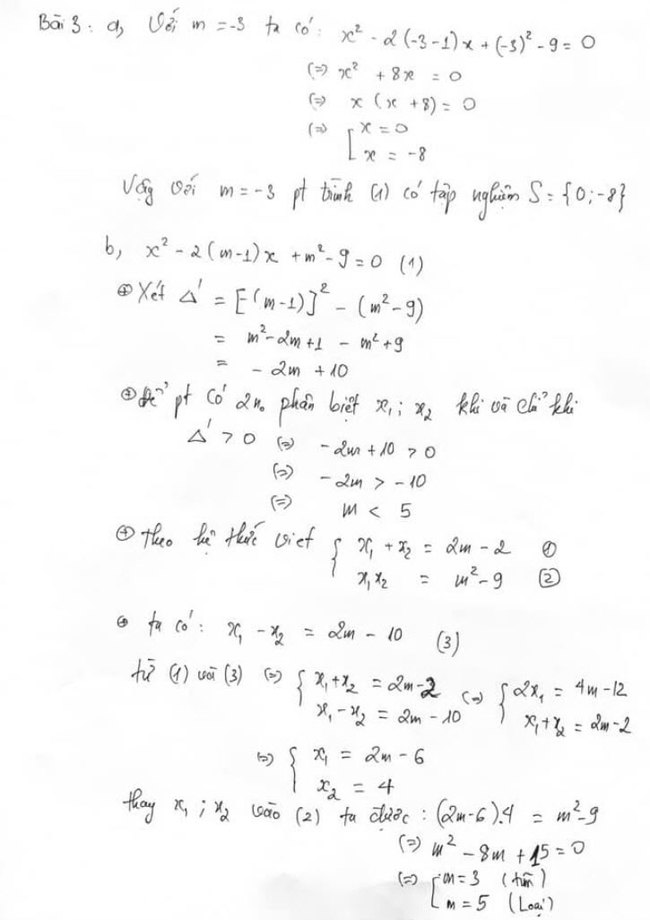 Bài 3: a, Với m = -3 ta có: x² - 2(-3-1)x + (-3)² - 9 = 0
(=) x² + 8x = 0
(=) x (x + 8) = 0
(=) [ x = 0
x = -8
Vậy với m = -3 pt trình (1) có tập nghiệm S = {0; -8}
b, x² - 2(m-1)x + m² - 9 = 0 (1)
⊕ Xét Δ' = [-(m-1)]² - (m² - 9)
= m² - 2m + 1 - m² + 9
= - 2m + 10
⊕ Để pt có 2 n₀ phân biệt x₁; x₂ khi và chỉ khi
Δ' > 0 (=) -2m + 10 > 0
(=) -2m > -10
(=) m < 5
⊕ theo hệ thức viet { x₁ + x₂ = 2m - 2 ①
x₁x₂ = m² - 9 ②
⊕ ta có: x₁ - x₂ = 2m - 10 (3)
từ (1) và (3) (=) { x₁ + x₂ = 2m - 2 (=) { 2x₁ = 4m - 12
x₁ - x₂ = 2m - 10 x₁ + x₂ = 2m - 2
(=) { x₁ = 2m - 6
x₂ = 4
thay x₁; x₂ vào (2) ta được: (2m-6).4 = m² - 9
(=) m² - 8m + 15 = 0
(=) [ m = 3 (tm)
m = 5 (Loại)